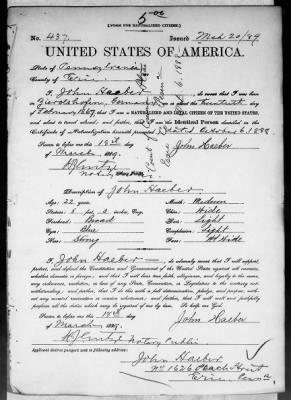 5 00
[FORM FOR NATURALIZED CITIZEN.]
No. 437. Issued Mch 20/89
UNITED STATES OF AMERICA.
State of Pennsylvania
County of Erie
I, John Haeber, do swear that I was born
in Germany on or about the
February 1867; that I am a NATURALIZED AND LOYAL CITIZEN OF THE UNITED STATES,
and about to travel abroad; and further, that I am the Identical Person described in the
Certificate of Naturalization herewith presented, dated October 6, 1888
Sworn to before me this 18th day of
March, 1889. John Haeber
Notary Public
Description of John Haeber
Age: 22 years. Mouth: Medium
Stature: 5 feet inches, Eng. Chin: Wide
Forehead: Broad Hair: Light
Eyes: Blue Complexion: Light
Nose: Strong Face:
I, John Haeber, do solemnly swear that I will support,
protect, and defend the Constitution and Government of the United States against all enemies,
whether domestic or foreign; and that I will bear true faith, allegiance, and loyalty to the same,
any ordinance, resolution, or law of any State, Convention, or Legislature to the contrary not-
withstanding; and further, that I do this with a full determination, pledge, and purpose, with-
out any mental reservation or evasion whatsoever; and further, that I will well and faithfully
perform all the duties which may be required of me by law. So help me God.
Sworn to before me this 18th day of
March, 1889. John Haeber
Notary Public.
Applicant desires passport sent to following address:
John Haeber
No 1626 Peach Street
Erie, Penna